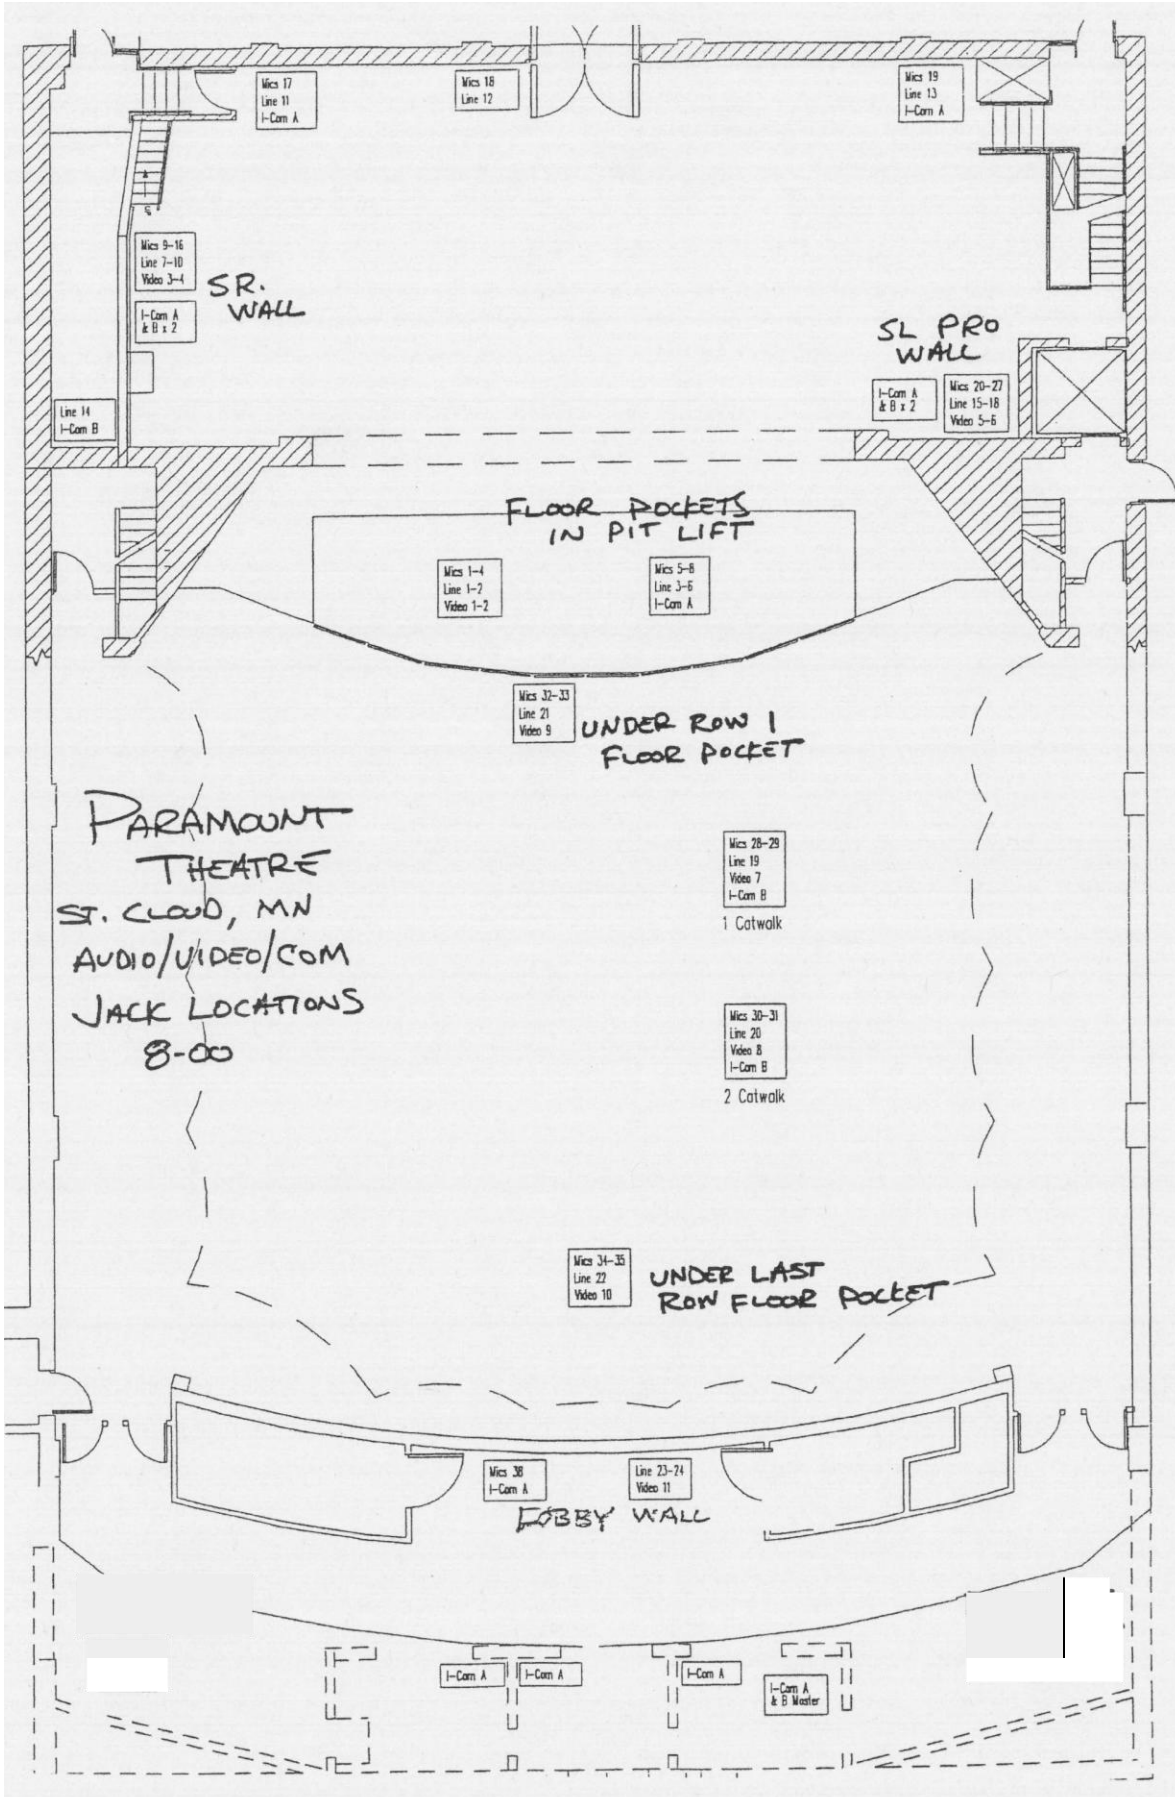 Mics 17
Line 11
I-Com A
Mics 18
Line 12
Mics 19
Line 13
I-Com A
Mics 9-16
Line 7-10
Video 3-4
I-Com A
& B x 2
SR.
WALL
Line 14
I-Com B
SL PRO
WALL
I-Com A
& B x 2
Mics 20-27
Line 15-18
Video 5-6
FLOOR POCKETS
IN PIT LIFT
Mics 1-4
Line 1-2
Video 1-2
Mics 5-8
Line 3-6
I-Com A
Mics 32-33
Line 21
Video 9
UNDER ROW 1
FLOOR POCKET
PARAMOUNT
THEATRE
ST. CLOUD, MN
AUDIO/VIDEO/COM
JACK LOCATIONS
8-00
Mics 28-29
Line 19
Video 7
I-Com B
1 Catwalk
Mics 30-31
Line 20
Video 8
I-Com B
2 Catwalk
Mics 34-35
Line 22
Video 10
UNDER LAST
ROW FLOOR POCKET
Mics 38
I-Com A
Line 23-24
Video 11
LOBBY WALL
I-Com A
I-Com A
I-Com A
I-Com A
& B Master